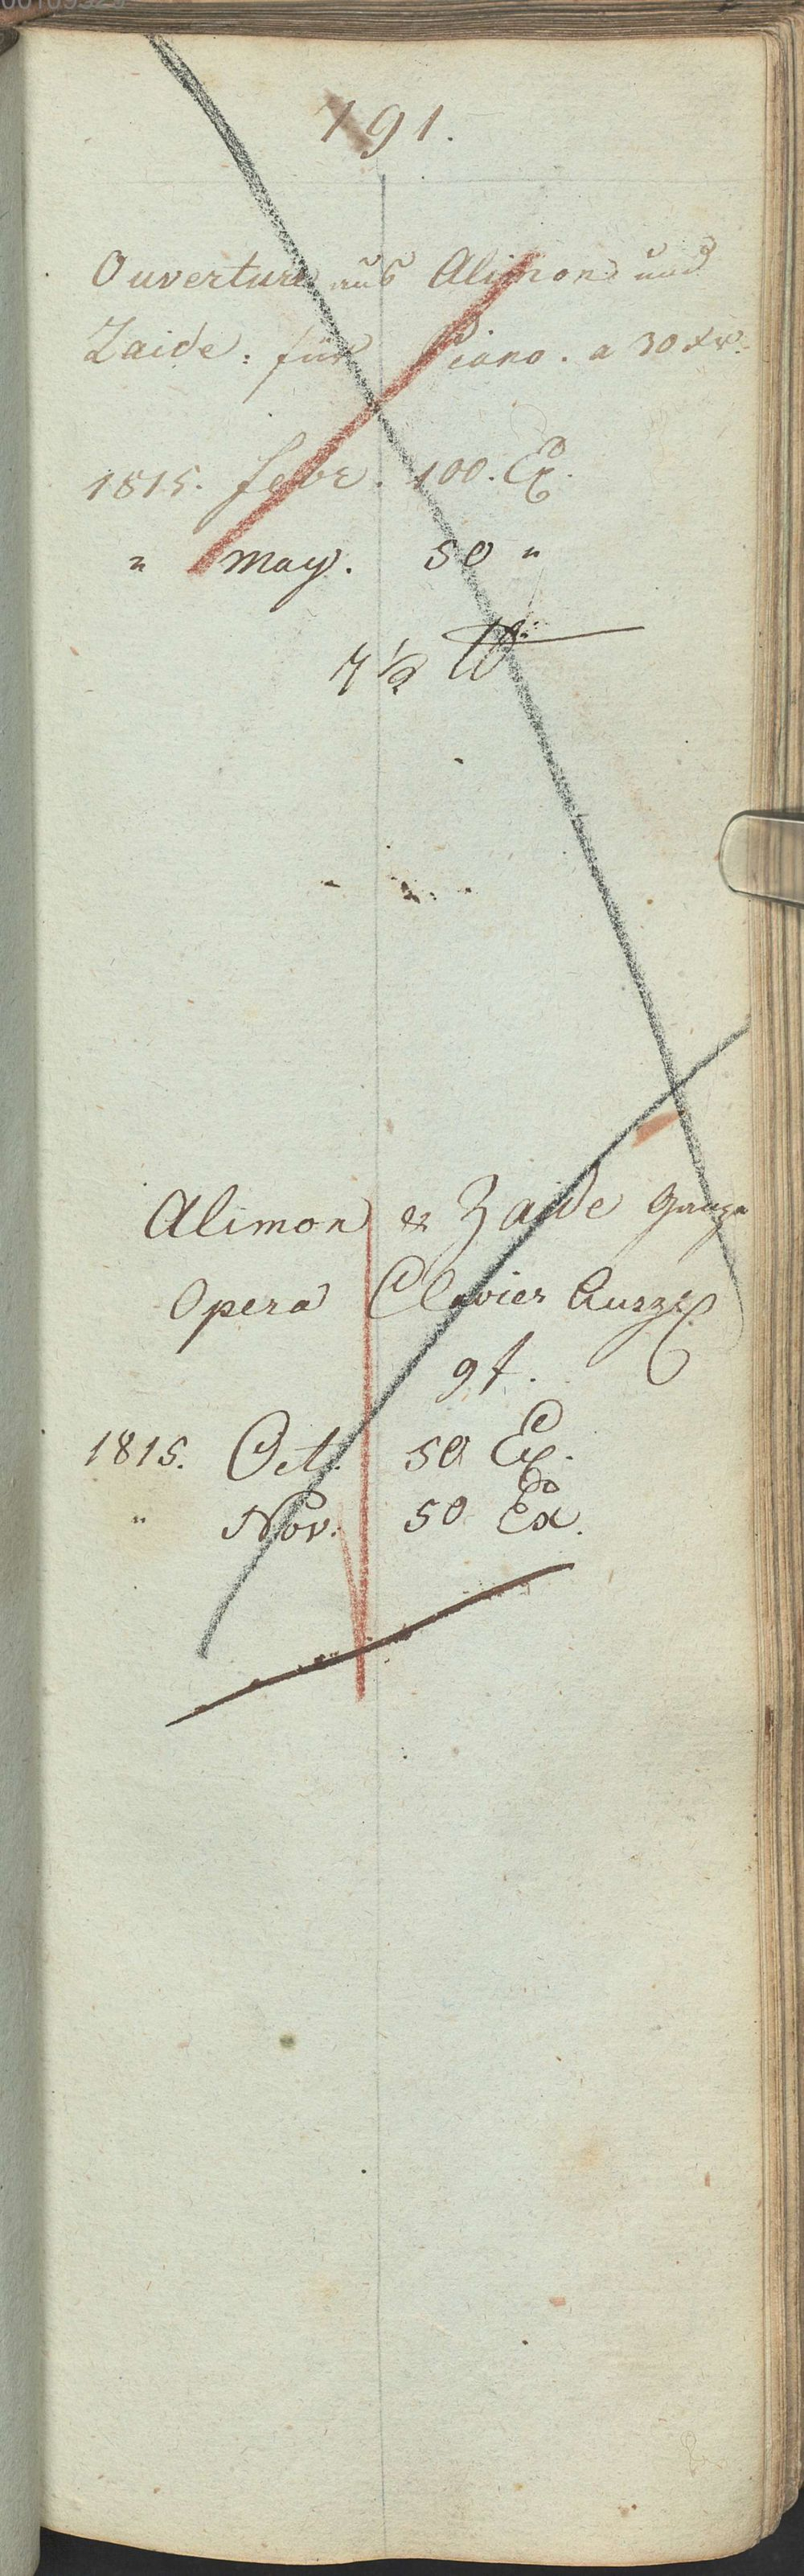 191.
Ouverture aus Alimon und
Zaide. für Piano. a 30 xr.
1815. febr. 100. Ex.
" May. 50 "
7 1/2 ℔
Alimon & Zaide ganze
Opera Clavier Auszg
9 f.
1815. Oct. 50 Ex.
" Nov. 50 Ex.